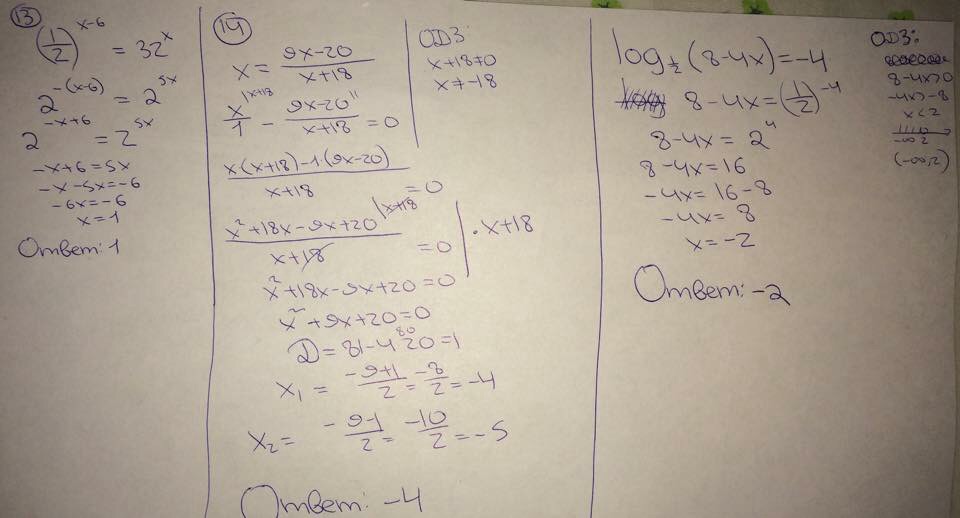 13
(1/2)^(x-6) = 32^x
2^(-(x-6)) = 2^(5x)
2^(-x+6) = 2^(5x)
-x+6=5x
-x-5x=-6
-6x=-6
x=1
Ответ: 1
14
x = (9x-20)/(x+18)
x/1 |x+18 - (9x-20)/(x+18) = 0
(x(x+18)-1·(9x-20))/(x+18) = 0
(x²+18x-9x+20)/(x+18) = 0 | · x+18
x²+18x-9x+20=0
x²+9x+20=0
D=81-4 20=1
80
x₁ = (-9+1)/2 = -8/2 = -4
x₂ = (-9-1)/2 = -10/2 = -5
Ответ: -4
ОДЗ:
x+18≠0
x≠-18
log_(1/2) (8-4x)=-4
8-4x=(1/2)^(-4)
8-4x=2^4
8-4x=16
-4x=16-8
-4x=8
x=-2
Ответ: -2
ОДЗ:
8-4x>0
-4x>-8
x<2
-∞ 2
(-∞;2)